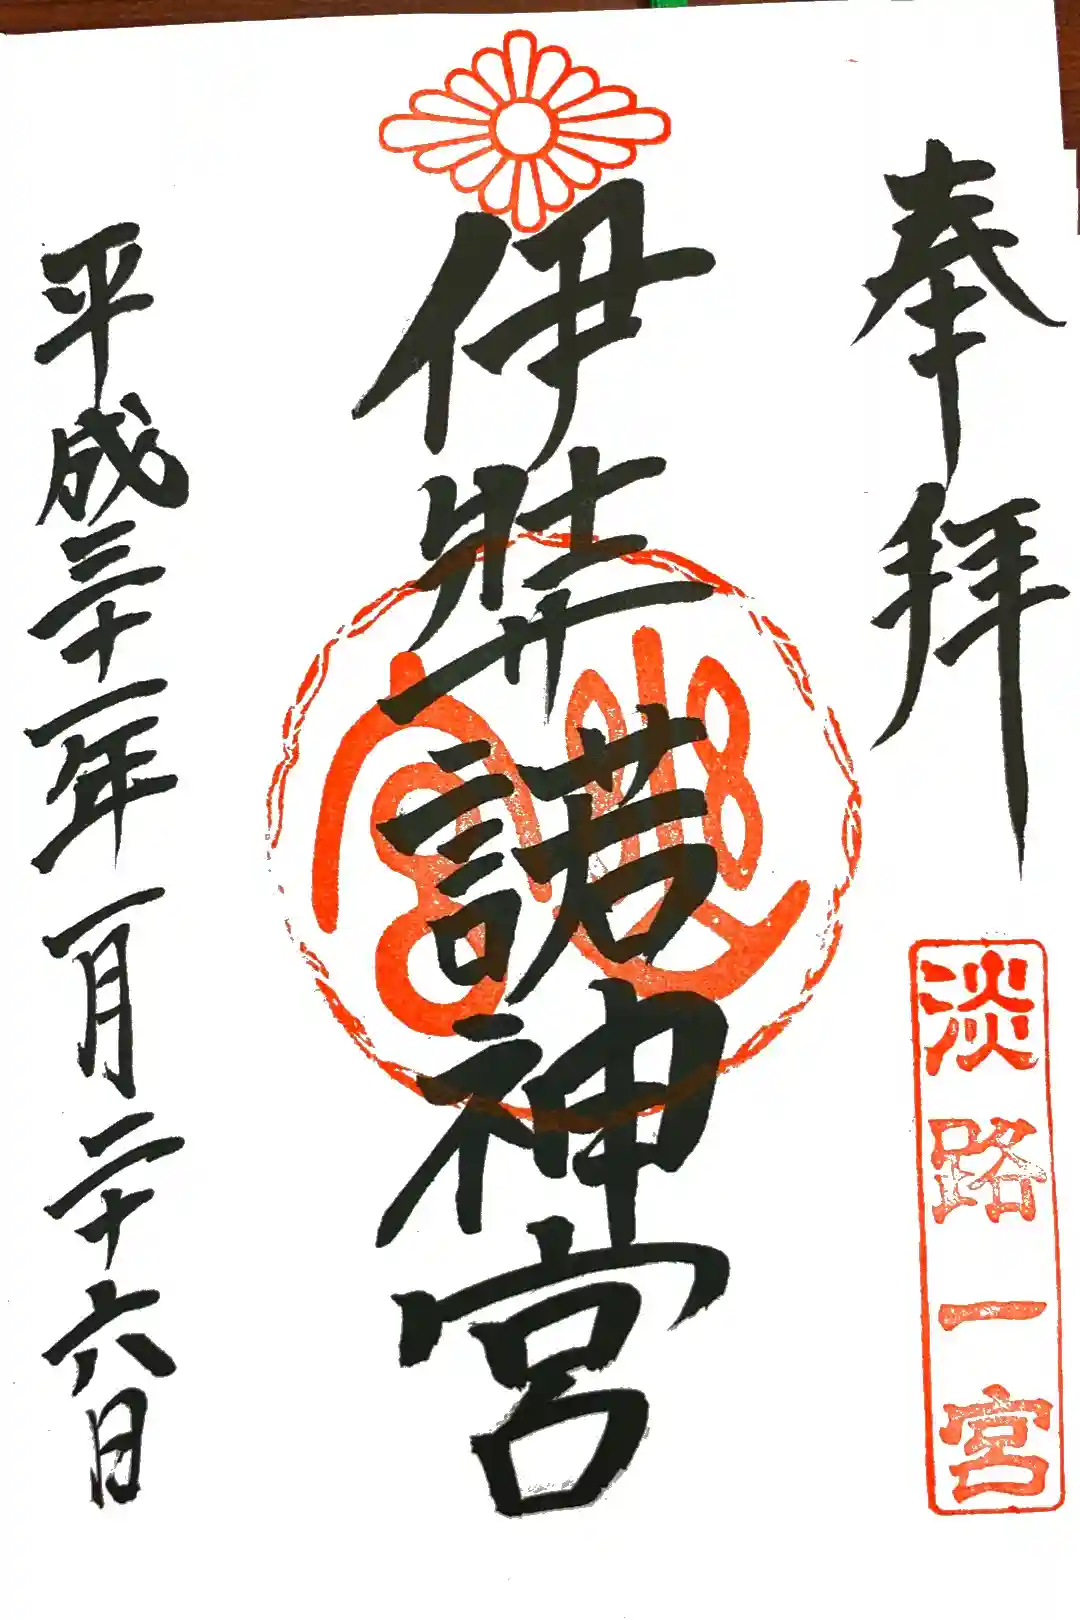 奉拝
淡路一宮
伊弉諾神宮
幽宮
平成三十一年一月二十六日